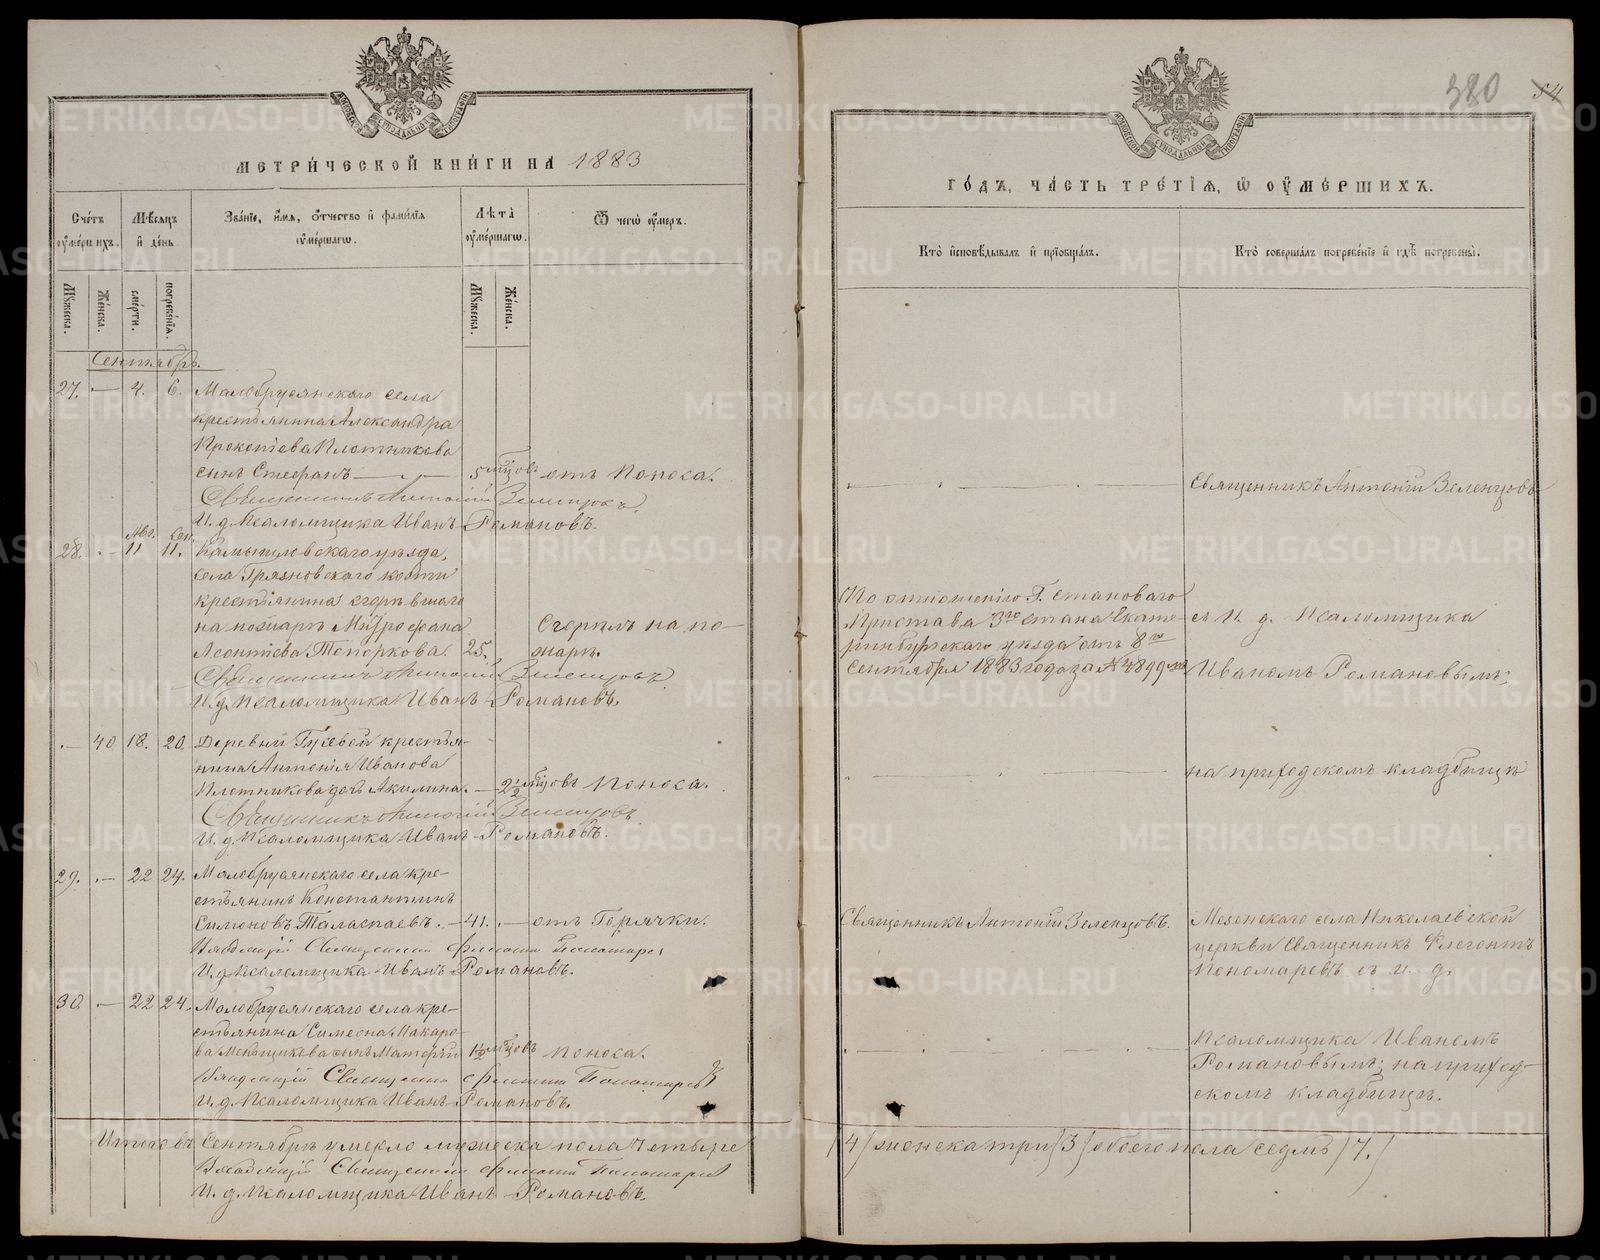 380 54
МЕТРИЧЕСКОЙ КНИГИ НА 1883
ГОДЪ, ЧАСТЬ ТРЕТІЯ, Ѿ ОУМЕРШИХЪ.
Счетъ оумершихъ.
Мѣсяцъ и день
Званіе, имя, отчество и фамилія оумершагѡ.
Лѣта оумершагѡ.
Ѿ чегѡ оумеръ.
Кто исповѣдывалъ и пріобщалъ.
Кто совершалъ погребеніе и гдѣ погребены.
Мужеска.
Женска.
смерти.
погребенія.
Мужеска.
Женска.
Сентябрь.
27. — 4. 6. Малобрусянскаго села
крестьянина Александра
Прокопіева Плотникова
сынъ Стефанъ — 5 мѣсяцовъ отъ поноса.
Священникъ Антоній Зеленцовъ
Священникъ Антоній Зеленцовъ.
И. д. Псаломщика Иванъ Романовъ.
Авг. Сен.
28. — 11 11. Камышловскаго уѣзда,
села Грязновскаго кости
крестьянина сгорѣвшаго
на пожарѣ Митрофана
Леонтіева Топоркова. 25.
Сгорѣлъ на по-
жарѣ.
По отношенію Г. Становаго
Пристава 3го стана Екате-
ринбургскаго уѣзда отъ 8го
Сентября 1883 года за № 4899мъ
съ И. д. Псаломщика
Иваномъ Романовымъ;
Священникъ Антоній Зеленцовъ.
И. д. Псаломщика Иванъ Романовъ.
— 40 18. 20. Деревни Гусевой крестья-
нина Антонія Иванова
Плотникова дочь Акилина. — 2½ мѣсяцовъ поноса.
на приходскомъ кладбищѣ
Священникъ Антоній Зеленцовъ
И. д. Псаломщика Иванъ Романовъ.
29. — 22 24. Малобрусянскаго села кре-
стьянинъ Константинъ
Симоновъ Таласпаевъ. — 41. — отъ горячки.
Священникъ Антоній Зеленцовъ.
Мезенскаго села Николаевской
церкви Священникъ Флегонтъ
Пономаревъ съ и. д.
Священникъ Флегонтъ Пономаревъ
И. д. Псаломщика Иванъ Романовъ.
30. — 22 24. Малобрусянскаго села кре-
стьянина Симеона Макаро-
ва Меньщикова сынъ 1½ мѣсяцовъ поноса.
Псаломщика Иваномъ
Романовымъ; на приход-
скомъ кладбищѣ.
Священникъ Флегонтъ Пономаревъ
И. д. Псаломщика Иванъ Романовъ.
Итого въ Сентябрѣ умерло мужеска пола четыре
/4/ женска три /3/ обоего пола седмь /7./
Священникъ Флегонтъ Пономаревъ
И. д. Псаломщика Иванъ Романовъ.
METRIKI.GASO-URAL.RU